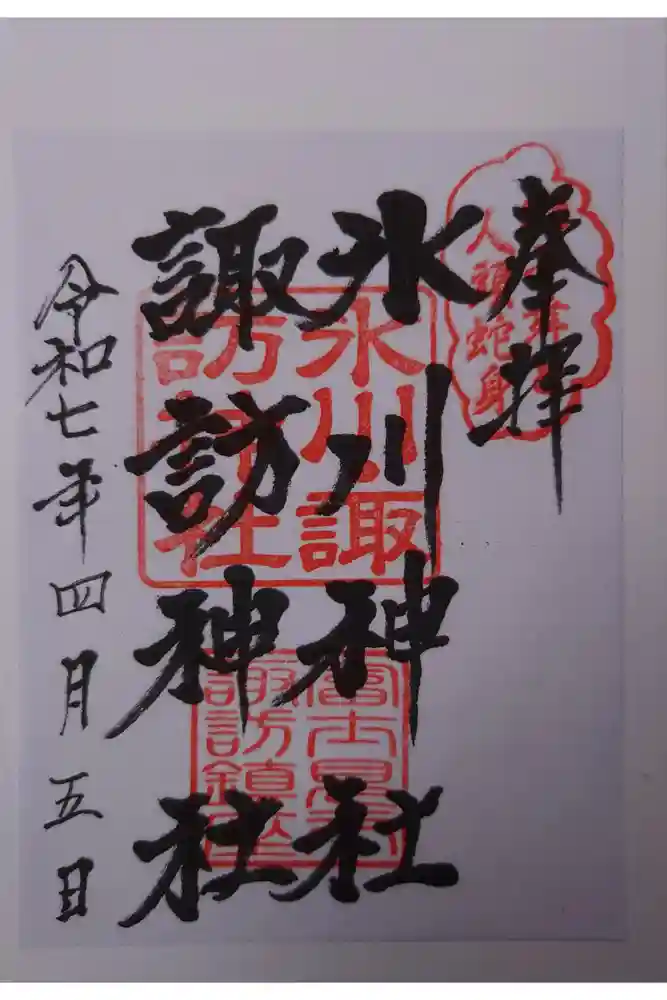 奉拝
人頭蛇身
氷川神社
諏訪神社
氷川諏
訪神社
諏訪鎮座
令和七年四月五日